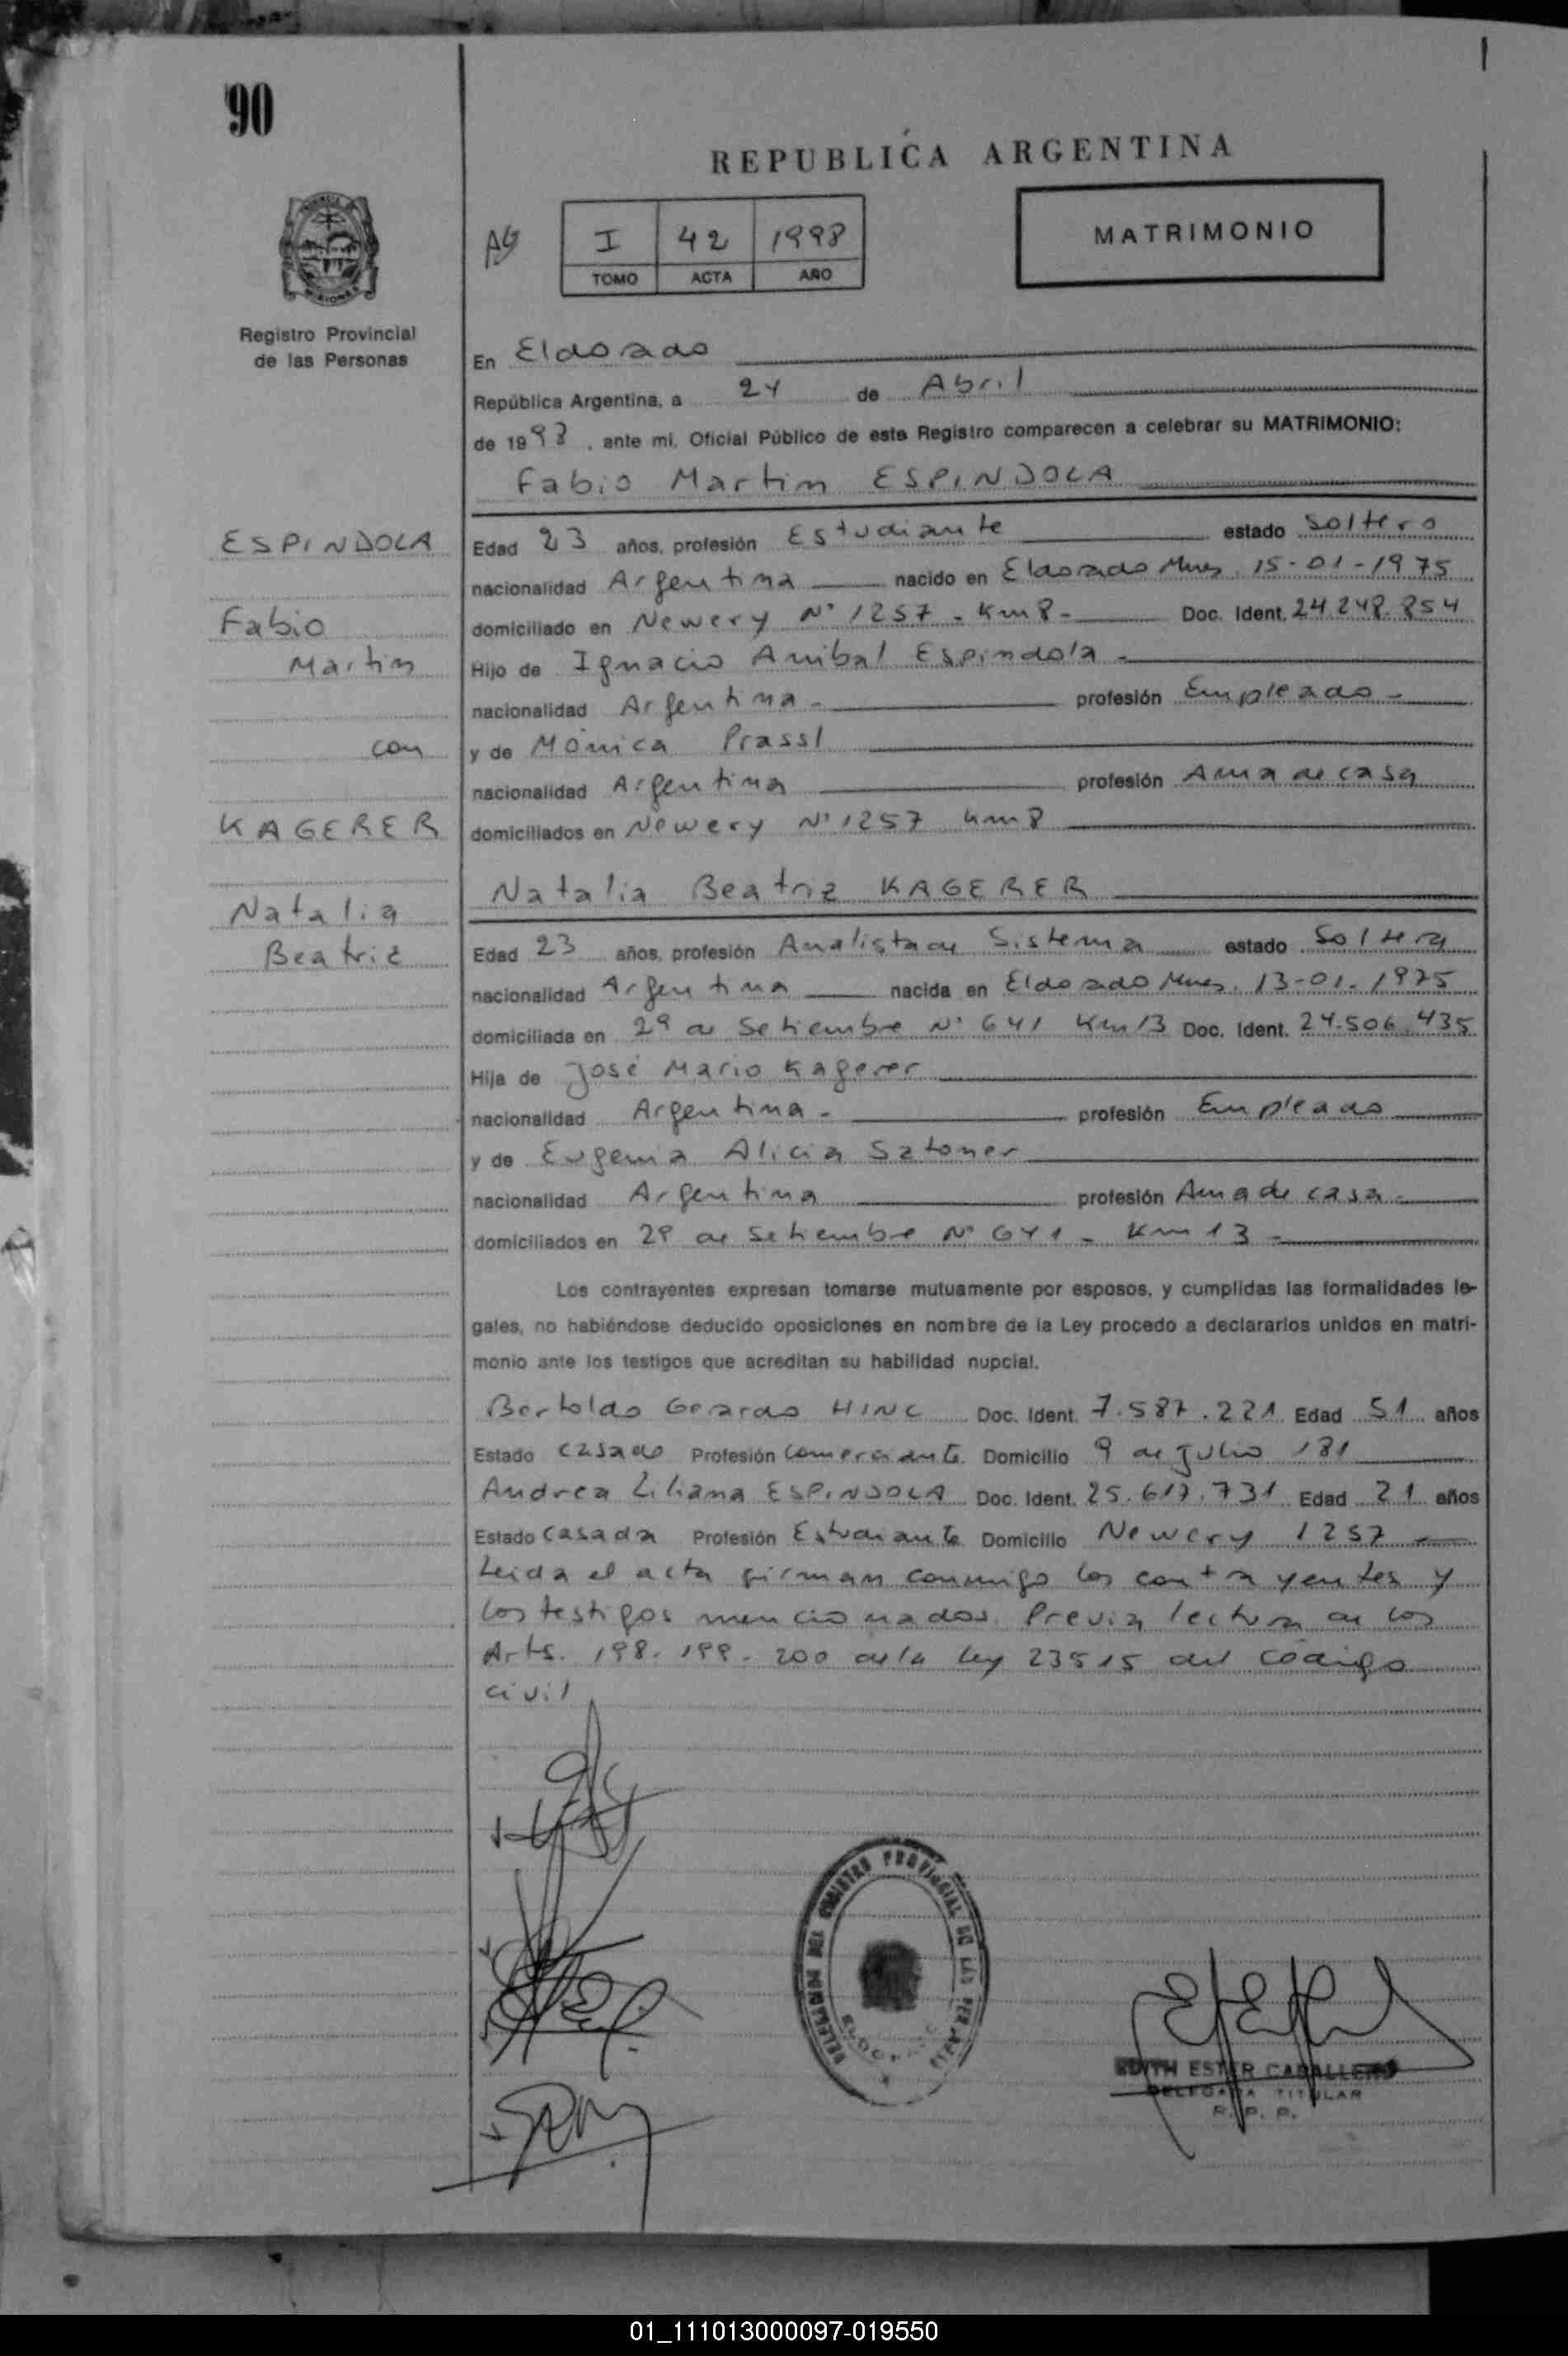 90
REPUBLICA ARGENTINA
I 42 1998
TOMO ACTA AÑO
MATRIMONIO
Registro Provincial
de las Personas
En Eldorado
República Argentina, a 24 de Abril
de 1998, ante mi, Oficial Público de este Registro comparecen a celebrar su MATRIMONIO:
Fabio Martin ESPINDOLA
ESPINDOLA
Fabio
Martin
con
KAGERER
Natalia
Beatriz
Edad 23 años, profesión Estudiante estado Soltero
nacionalidad Argentina nacido en Eldorado Mnes. 15-01-1975
domiciliado en Newery N° 1257 - Km 8 - Doc. Ident. 24.248.854
Hijo de Ignacio Anibal Espindola -
nacionalidad Argentina - profesión Empleado -
y de Mónica Prassl
nacionalidad Argentina profesión Ama de casa
domiciliados en Newery N° 1257 Km 8
Natalia Beatriz KAGERER
Edad 23 años, profesión Analista de Sistema estado Soltera
nacionalidad Argentina nacida en Eldorado Mnes. 13-01-1975
domiciliada en 29 de Setiembre N° 641 Km 13 Doc. Ident. 24.506.435
Hija de José Mario Kagerer
nacionalidad Argentina - profesión Empleado
y de Eugenia Alicia Sztoner
nacionalidad Argentina profesión Ama de casa -
domiciliados en 29 de Setiembre N° 641 - Km 13 -
Los contrayentes expresan tomarse mutuamente por esposos, y cumplidas las formalidades le-
gales, no habiéndose deducido oposiciones en nombre de la Ley procedo a declararlos unidos en matri-
monio ante los testigos que acreditan su habilidad nupcial.
Bertoldo Gerardo HINC Doc. Ident. 7.587.221 Edad 51 años
Estado Casado Profesión Comerciante Domicilio 9 de Julio 181
Andrea Liliana ESPINDOLA Doc. Ident. 25.617.731 Edad 21 años
Estado Casada Profesión Estudiante Domicilio Newery 1257
Leida el acta firman conmigo los contrayentes y
los testigos mencionados. Previa lectura de los
Arts. 198. 199. 200 de la Ley 23515 del Código
civil
DELEGACION DEL REGISTRO PROVINCIAL DE LAS PERSONAS
ELDORADO
EDITH ESTER CABALLERO
DELEGADA TITULAR
R. P. P.
01_111013000097-019550